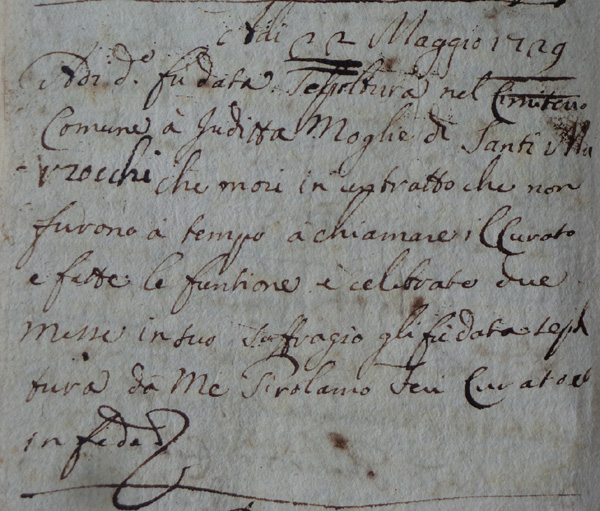 Adi 22 Maggio 1729
Adi d.º fu data Sepoltura nel Cimiterio
Comune à Juditta Moglie di Santi Ma
rzocchi che morì in un tratto che non
furono à tempo à chiamare il Curato
e fatte le funtione e celebrato due
messe in suo suffragio gli fu data sepol
tura da Me Girolamo Curato
in fede